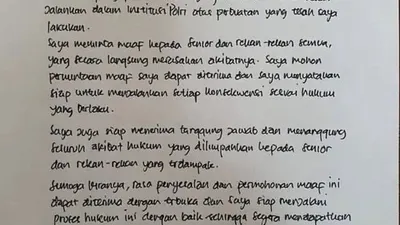 jalankan dalam Institusi Polri atas perbuatan yang telah saya
lakukan.
Saya meminta maaf kepada Senior dan rekan-rekan semua,
yang secara langsung merasakan akibatnya. Saya mohon
permintaan maaf saya dapat diterima dan saya menyatakan
siap untuk menjalankan setiap konsekwensi sesuai hukum
yang berlaku.
Saya juga siap menerima tanggung jawab dan menanggung
seluruh akibat hukum yang dilimpahkan kepada senior
dan rekan-rekan yang terdampak.
Semoga kiranya, rasa penyesalan dan permohonan maaf ini
dapat diterima dengan terbuka dan saya siap menjalani
proses hukum ini dengan baik sehingga segera mendapatkan